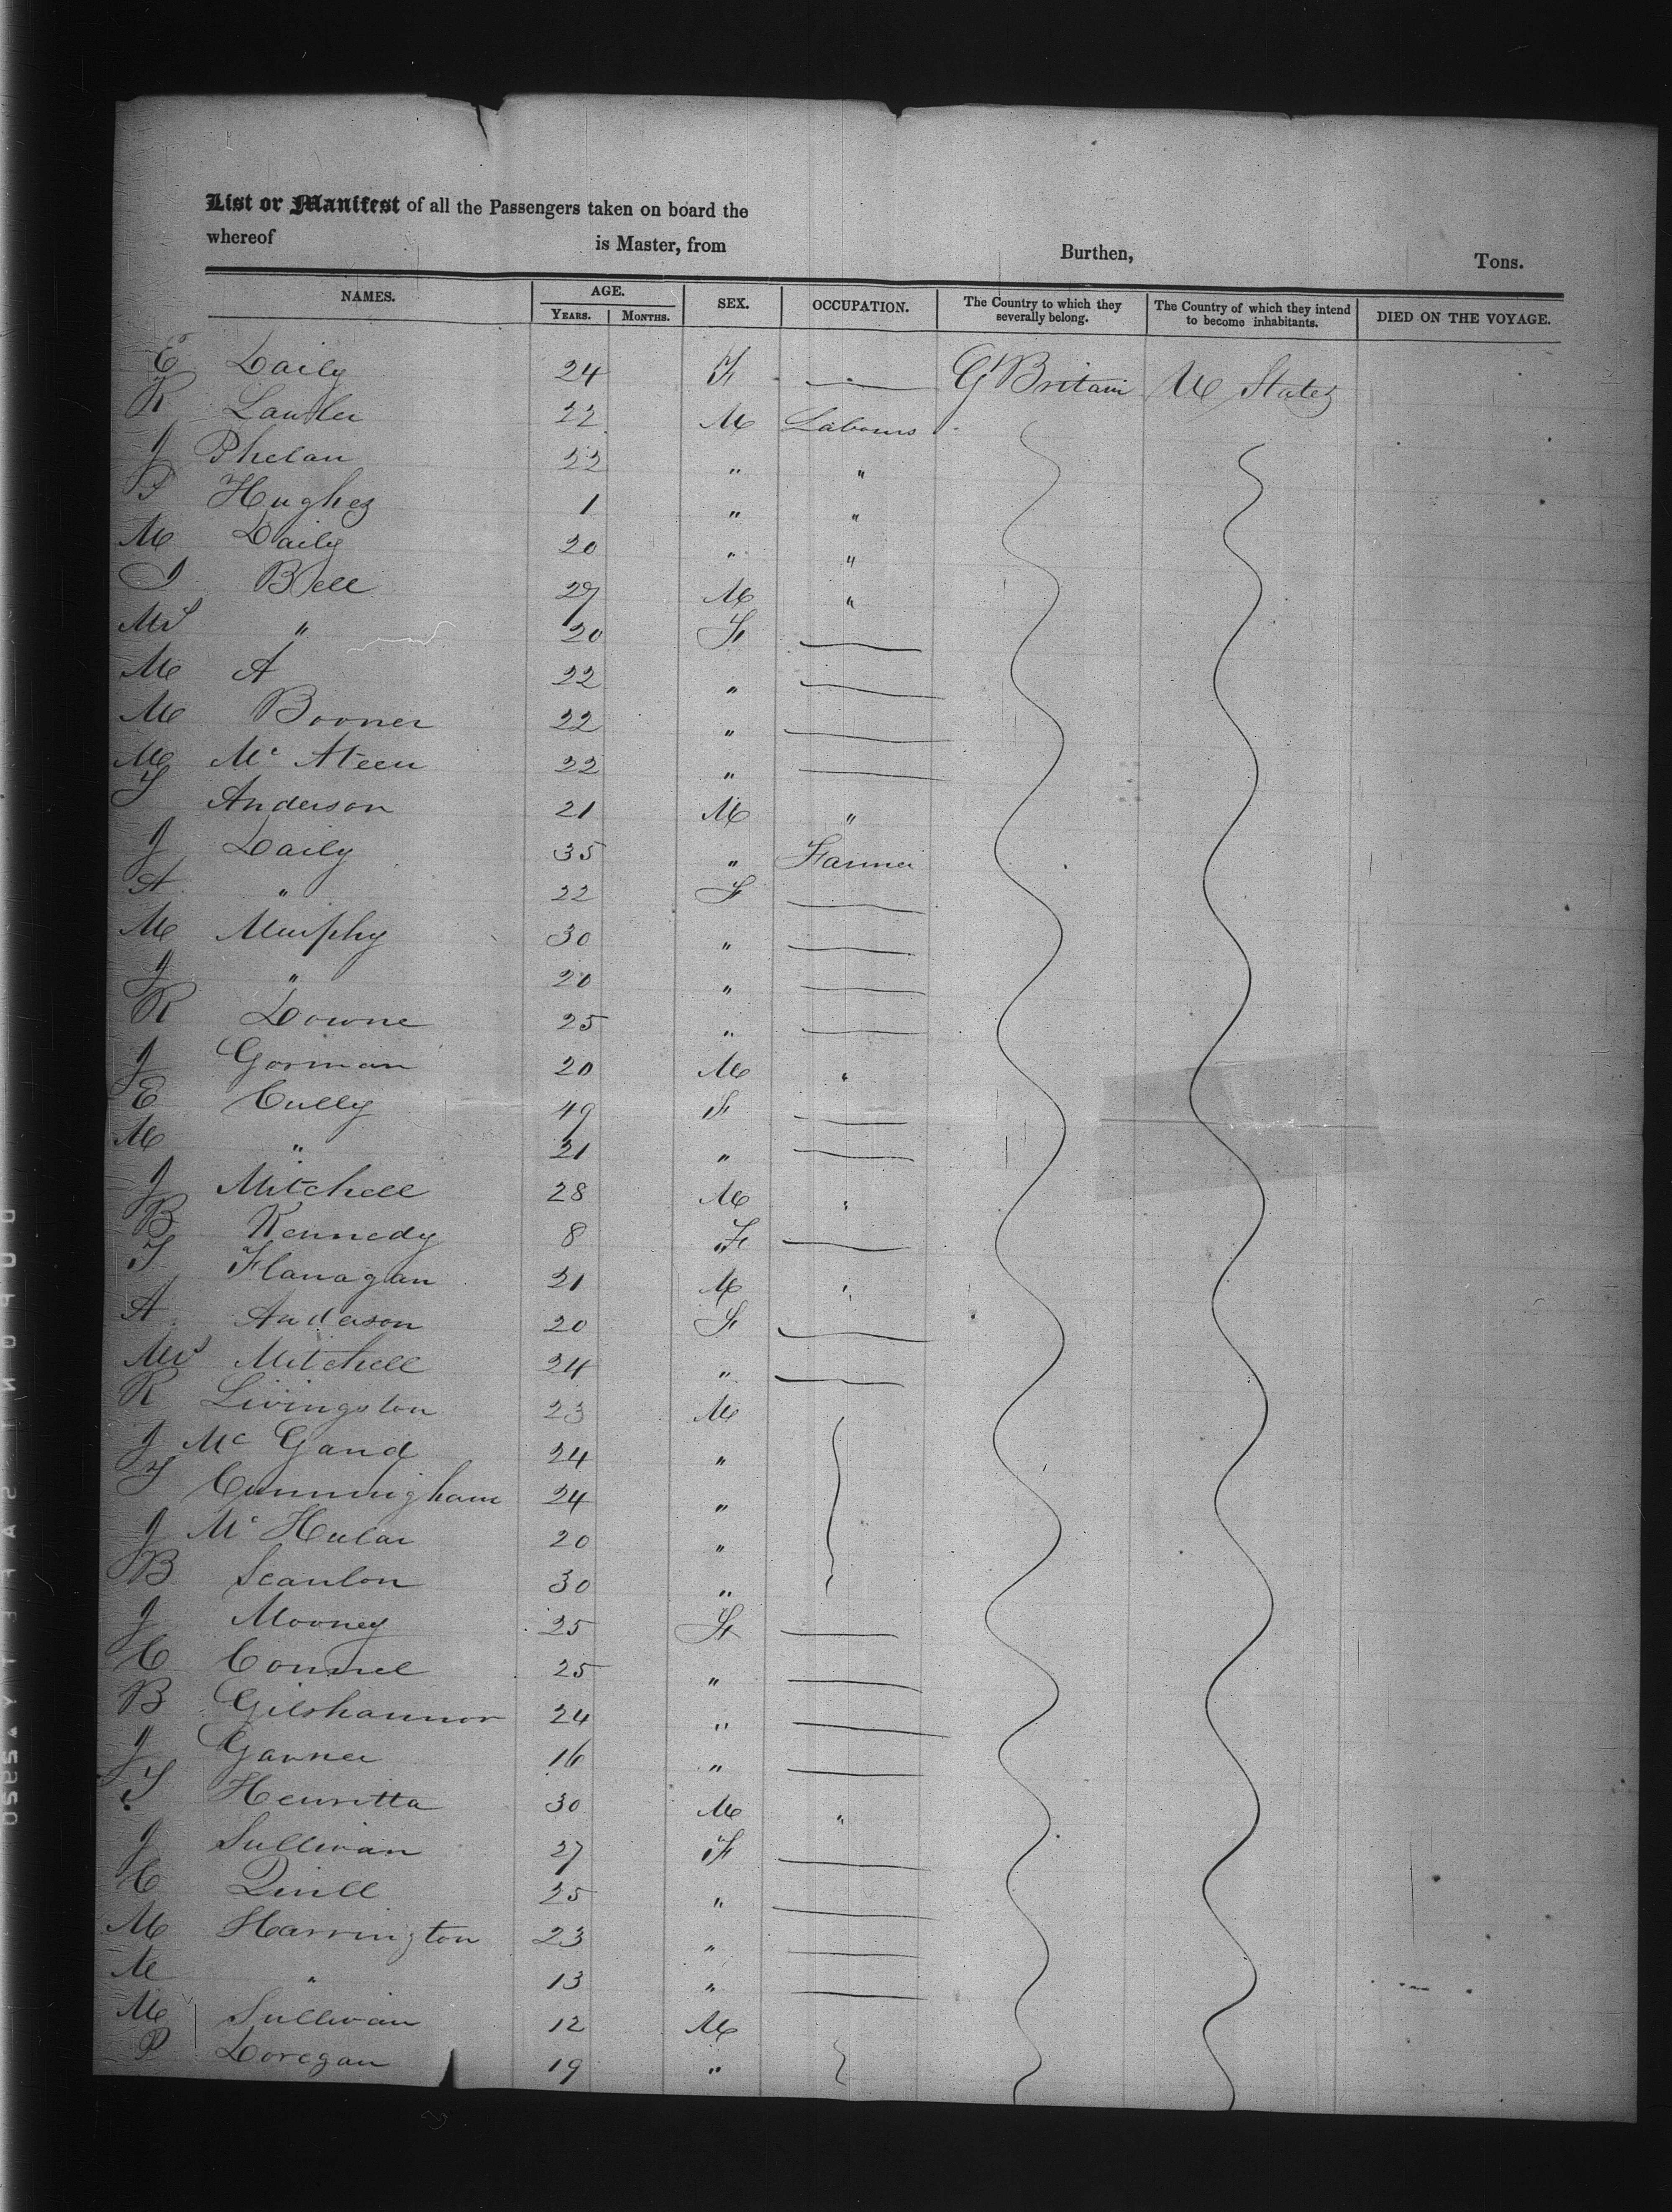 List or Manifest of all the Passengers taken on board the
whereof is Master, from Burthen, Tons.
NAMES. AGE. SEX. OCCUPATION. The Country to which they severally belong. The Country of which they intend to become inhabitants. DIED ON THE VOYAGE.
YEARS. MONTHS.
E Daily 24 F — G Britain U States
R Lawler 22 M Labours
J Phelan 22 " "
P Hughes 1 " "
M Daily 20 " "
J Bell 27 M "
Mrs " 20 F —
M A 22 " —
M Booner 22 " —
M Mc Ateen 22 " —
T Anderson 21 M "
J Daily 35 " Farmer
A " 22 F —
M Murphy 30 " —
J " 20 " —
R Downe 25 " —
J Gorman 20 M "
E Cully 49 F —
M " 21 " —
J Mitchell 28 M "
B Kennedy 8 F —
T Flanagan 21 M "
A Anderson 20 F —
Mrs Mitchell 24 " —
R Livingston 23 M
J Mc Gand 24 "
T Cunningham 24 "
J Mc 20 "
B Scanlon 30 "
J Mooney 25 F —
C Connel 25 " —
B Gilshannor 24 " —
J Garner 16 " —
Henritta 30 M "
J Sullivan 27 F —
C Quill 25 " —
M Harrington 23 " —
M " 13 " —
M Sullivan 12 M
P Doregan 19 "